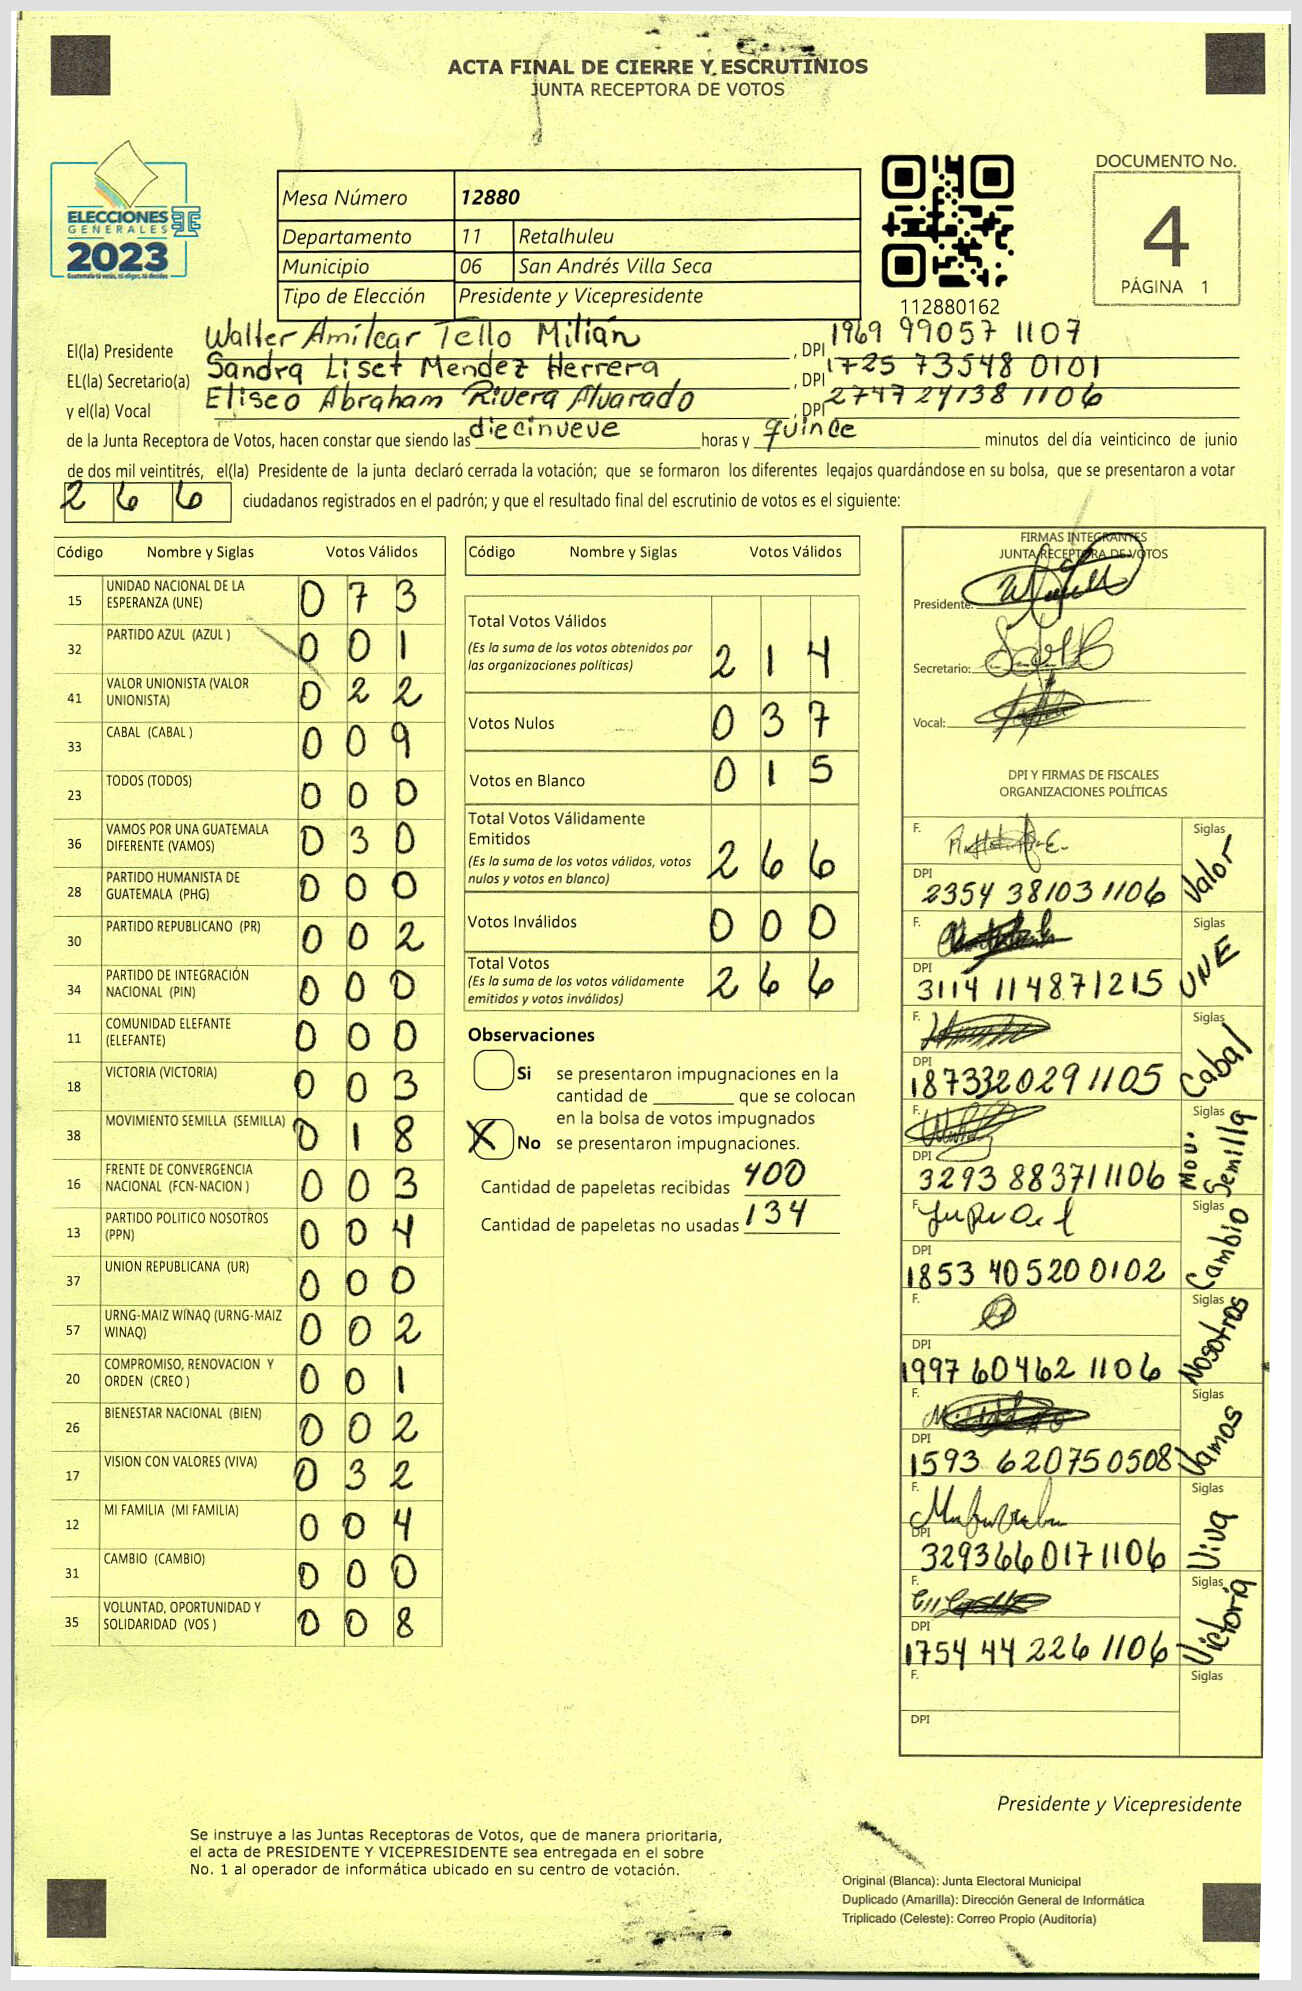 ACTA FINAL DE CIERRE Y ESCRUTINIOS
JUNTA RECEPTORA DE VOTOS
ELECCIONES
GENERALES
2023
Mesa Número 12880
Departamento 11 Retalhuleu
Municipio 06 San Andrés Villa Seca
Tipo de Elección Presidente y Vicepresidente
112880162
DOCUMENTO No.
4
PÁGINA 1
El(la) Presidente Walter Amílcar Tello Milián, DPI 1969 99057 1107
EL(la) Secretario(a) Sandra Liset Mendez Herrera, DPI 1725 73548 0101
y el(la) Vocal Eliseo Abraham Rivera Alvarado, DPI 2747 24138 1106
de la Junta Receptora de Votos, hacen constar que siendo las diecinueve horas y quince minutos del día veinticinco de junio
de dos mil veintitrés, el(la) Presidente de la junta declaró cerrada la votación; que se formaron los diferentes legajos quardándose en su bolsa, que se presentaron a votar
266 ciudadanos registrados en el padrón; y que el resultado final del escrutinio de votos es el siguiente:
Código Nombre y Siglas Votos Válidos
15 UNIDAD NACIONAL DE LA ESPERANZA (UNE) 073
32 PARTIDO AZUL (AZUL ) 001
41 VALOR UNIONISTA (VALOR UNIONISTA) 022
33 CABAL (CABAL ) 009
23 TODOS (TODOS) 000
36 VAMOS POR UNA GUATEMALA DIFERENTE (VAMOS) 030
28 PARTIDO HUMANISTA DE GUATEMALA (PHG) 000
30 PARTIDO REPUBLICANO (PR) 002
34 PARTIDO DE INTEGRACIÓN NACIONAL (PIN) 000
11 COMUNIDAD ELEFANTE (ELEFANTE) 000
18 VICTORIA (VICTORIA) 003
38 MOVIMIENTO SEMILLA (SEMILLA) 018
16 FRENTE DE CONVERGENCIA NACIONAL (FCN-NACION ) 003
13 PARTIDO POLITICO NOSOTROS (PPN) 004
37 UNION REPUBLICANA (UR) 000
57 URNG-MAIZ WINAQ (URNG-MAIZ WINAQ) 002
20 COMPROMISO, RENOVACION Y ORDEN (CREO ) 001
26 BIENESTAR NACIONAL (BIEN) 002
17 VISION CON VALORES (VIVA) 032
12 MI FAMILIA (MI FAMILIA) 004
31 CAMBIO (CAMBIO) 000
35 VOLUNTAD, OPORTUNIDAD Y SOLIDARIDAD (VOS ) 008
Código Nombre y Siglas Votos Válidos
Total Votos Válidos
(Es la suma de los votos obtenidos por
las organizaciones políticas) 214
Votos Nulos 037
Votos en Blanco 015
Total Votos Válidamente
Emitidos
(Es la suma de los votos válidos, votos
nulos y votos en blanco) 266
Votos Inválidos 000
Total Votos
(Es la suma de los votos válidamente
emitidos y votos inválidos) 266
Observaciones
Si se presentaron impugnaciones en la
cantidad de ________ que se colocan
en la bolsa de votos impugnados
X No se presentaron impugnaciones.
Cantidad de papeletas recibidas 400
Cantidad de papeletas no usadas 134
FIRMAS INTEGRANTES
JUNTA RECEPTORA DE VOTOS
Presidente:
Secretario:
Vocal:
DPI Y FIRMAS DE FISCALES
ORGANIZACIONES POLÍTICAS
F. Siglas Valor
DPI 2354 38103 1106
F. Siglas UNE
DPI 3114 11487 1215
F. Siglas Cabal
DPI 1873320291105
F. Siglas Mov. Semilla
DPI 3293 88371 1106
F. Siglas Cambio
DPI 1853 40520 0102
F. Siglas Nosotros
DPI 1997 60462 1106
F. Siglas Vamos
DPI 1593 62075 0508
F. Siglas Viva
DPI 3293660171106
F. Siglas Victoria
DPI 1754 44 226 1106
F. Siglas
DPI
Presidente y Vicepresidente
Se instruye a las Juntas Receptoras de Votos, que de manera prioritaria,
el acta de PRESIDENTE Y VICEPRESIDENTE sea entregada en el sobre
No. 1 al operador de informática ubicado en su centro de votación.
Original (Blanca): Junta Electoral Municipal
Duplicado (Amarilla): Dirección General de Informática
Triplicado (Celeste): Correo Propio (Auditoría)